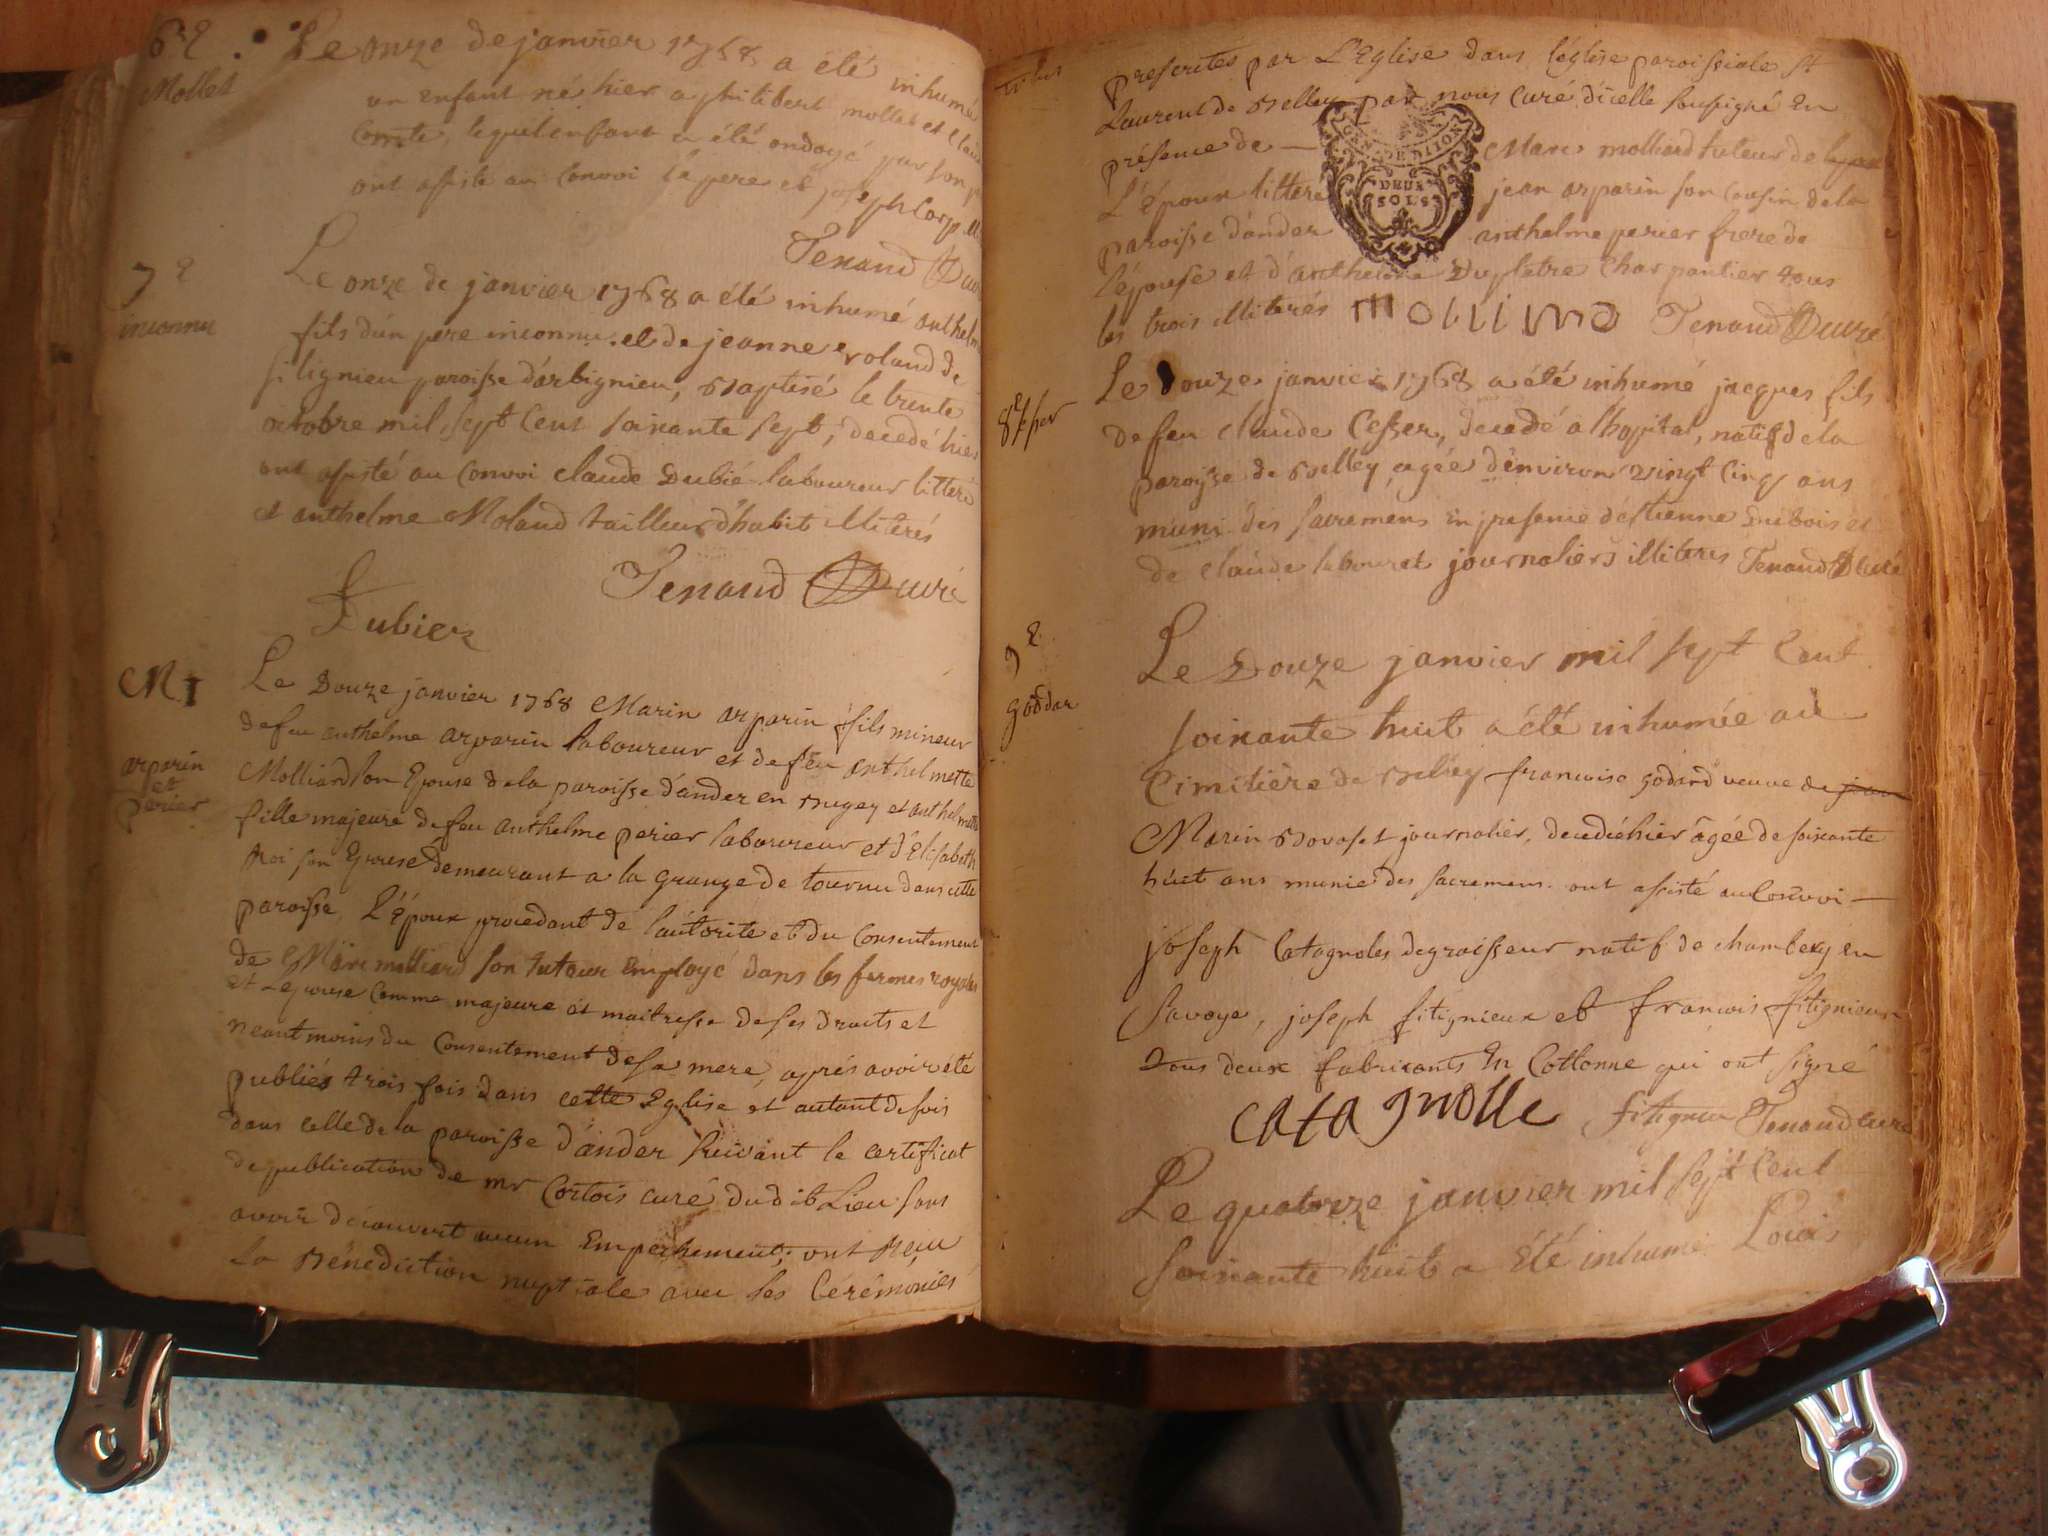 6e
Mollet
Le onze de janvier 1768 a été inhumé
un enfant né hier a philibert mollet et Claud
Comte, lequel enfant a été ondoyé par son p
ont assisté au Convoi le pere et joseph Carp
Tenand Curé
7e
inconnu
Le onze de janvier 1768 a été inhumé anthelm
fils d'un pere inconnu et de jeanne roland de
silignieu paroisse d'arbignieu, Baptisé le trente
octobre mil sept Cent soixante sept, decedé hier
ont assisté au Convoi claude Dubié laboureur litteré
et anthelme Moland tailleur d'habit illiterés
Tenand Curé
Dubier
M 1
arparin
et
perier
Le Douze janvier 1768 Marin arparin fils mineur
de feu anthelme arparin laboureur et de feu anthelmette
Molliard son Epouse de la paroisse d'ander en Bugey et anthelmette
fille majeure de feu anthelme perier laboureur et d'Elisabeth
roi son Epouse Demeurant a la grange de tournu dans cette
paroisse, L'Epoux procedant de l'autorité et du Consentement
de Marc molliard son tuteur Employé dans les fermes royales
et L'Epouse Comme majeure et maitresse de ses droits et
neantmoins du Consentement de sa mere, aprés avoir été
publiés trois fois dans cette Eglise et autant de fois
dans celle de la paroisse d'ander suivant le certificat
de publication de mr Cortois curé dudit Lieu sans
avoir decouvert aucun Empechement; ont reçu
la Bénédiction nuptiale avec les Cérémonies
prescrites par L'Eglise dans l'église paroissiale st
Laurent de Belley par nous Curé d'icelle soussigné En
présence de — Marc molliard tuteur de
L'Epoux litteré jean arparin son Cousin de la
paroisse d'ander anthelme perier frere de
l'épouse et d'anthelme Duplatre Charpantier tous
les trois illiterés Tenand Curé
GEN. DE DIJON
DEUX
SOLS
8e
Le Douze janvier 1768 a été inhumé jacques fils
de feu claude Cesser, decedé a l'hopital, natif de la
paroisse de Belley, agée d'environ vingt Cinq ans
muni des sacremens en presence d'Estienne Dubois et
de claude labouret journaliers illiteres Tenand Curé
9e
goddar
Le Douze janvier mil sept Cent
soixante huit a été inhumée au
Cimitière de Belley francoise godard veuve de jean
Marin Bovaset journalier, decedée hier âgée de soixante
huit ans munie des sacremens. ont assisté au Convoi —
joseph Catagnoles degraisseur natif de chambery en
Savoye, joseph fitignieux et francois fitignieux
tous deux fabricants En Cottonne qui ont signé
catagnolle fitignieu Tenand curé
Le quatorze janvier mil sept Cent
soixante huit a Été inhumé Louis